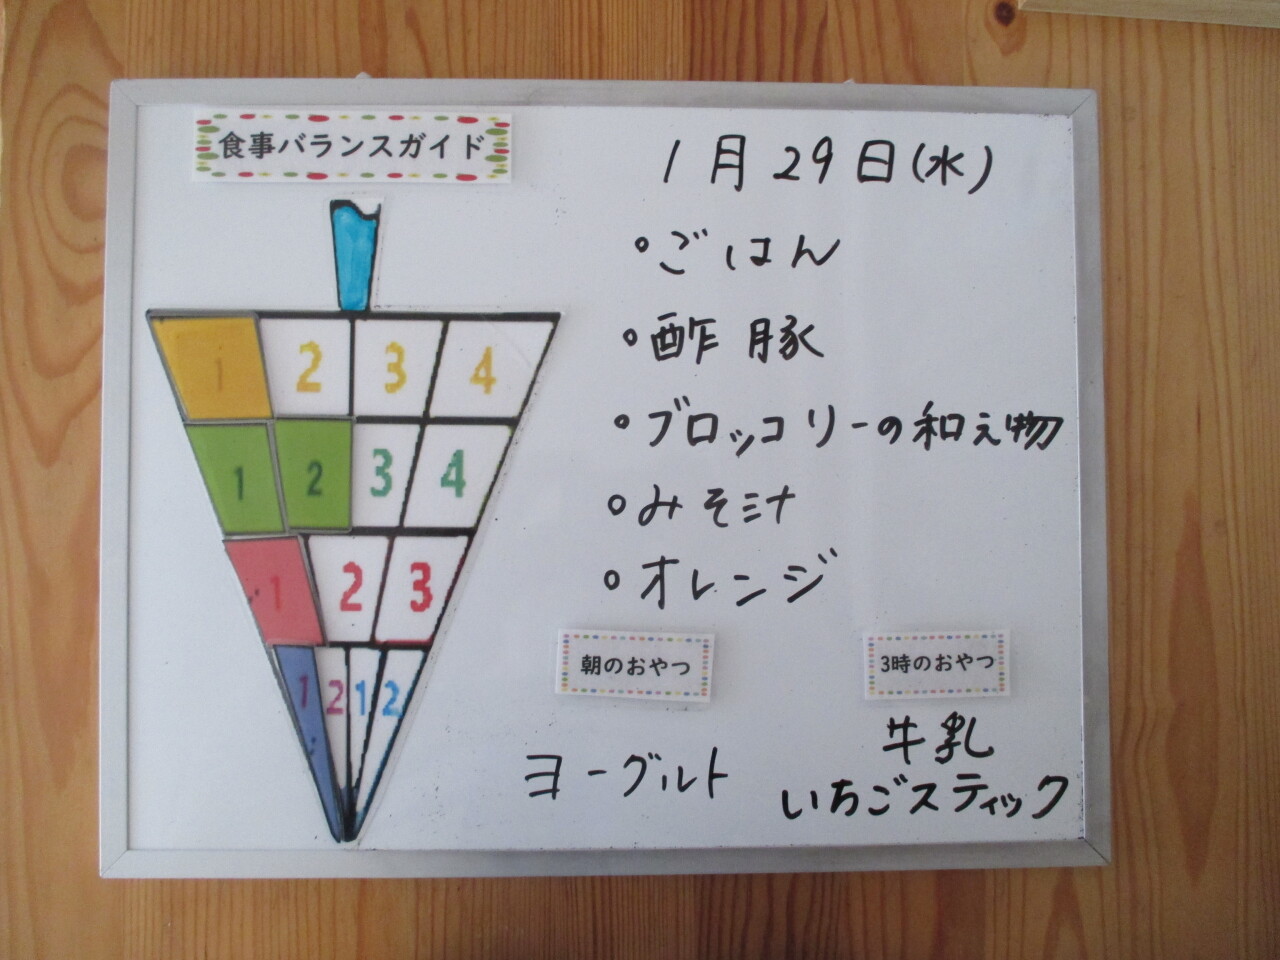 食事バランスガイド
1月29日(水)
・ごはん
・酢豚
・ブロッコリーの和え物
・みそ汁
・オレンジ
1 2 3 4
1 2 3 4
1 2 3
1 2 1 2
朝のおやつ
ヨーグルト
3時のおやつ
牛乳
いちごスティック